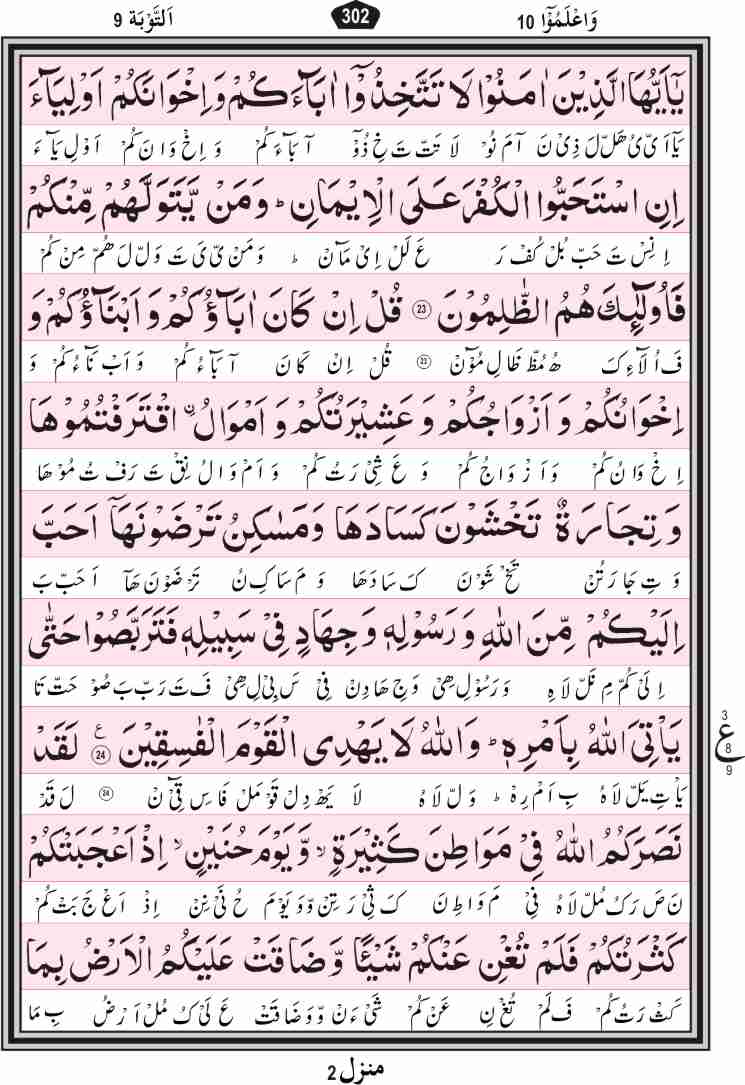 وَاعْلَمُوْٓا 10 302 اَلتَّوْبَة 9
يٰٓاَيُّهَا الَّذِيْنَ اٰمَنُوْا لَا تَتَّخِذُوْٓا اٰبَآءَكُمْ وَاِخْوَانَكُمْ اَوْلِيَآءَ
يَآ اَىْ ىُ هَلْ لَ ذِىْ نَ آ مَ نُوْ لَا تَتْ تَ خِ ذُوْٓ آ بَآءَ كُمْ وَ اِخْ وَا نَ كُمْ اَوْ لِ يَآ ءَ
اِنِ اسْتَحَبُّوا الْكُفْرَ عَلَى الْاِيْمَانِ ؕ وَمَنْ يَّتَوَلَّهُمْ مِّنْكُمْ
اِ نِسْ تَ حَبْ بُلْ كُفْ رَ عَ لَلْ اِىْ مَآنْ ؕ وَ مَنْ ىْ ىَ تَ وَلْ لَ هُمْ مِنْ كُمْ
فَاُولٰٓئِكَ هُمُ الظّٰلِمُوْنَ 23 قُلْ اِنْ كَانَ اٰبَآؤُكُمْ وَاَبْنَآؤُكُمْ وَ
فَ اُ لَآءِ كَ هُ مُظْ ظَا لِ مُوْٓنْ 23 قُلْ اِنْ كَا نَ آ بَآءُ كُمْ وَ اَبْ نَآءُ كُمْ وَ
اِخْوَانُكُمْ وَاَزْوَاجُكُمْ وَعَشِيْرَتُكُمْ وَاَمْوَالُ اۨقْتَرَفْتُمُوْهَا
اِخْ وَا نُ كُمْ وَ اَزْ وَا جُ كُمْ وَ عَ شِىْ رَ تُ كُمْ وَ اَمْ وَا لُ نِقْ تَ رَفْ تُ مُوْ هَا
وَتِجَارَةٌ تَخْشَوْنَ كَسَادَهَا وَمَسٰكِنُ تَرْضَوْنَهَآ اَحَبَّ
وَ تِ جَا رَ تُنْ تَخْ شَوْ نَ كَ سَا دَ هَا وَ مَ سَا كِ نُ تَرْ ضَوْ نَ هَآ اَ حَبْ بَ
اِلَيْكُمْ مِّنَ اللّٰهِ وَرَسُوْلِهٖ وَجِهَادٍ فِيْ سَبِيْلِهٖ فَتَرَبَّصُوْا حَتّٰى
اِ لَىْ كُمْ مِ نَلْ لَا هِ وَ رَ سُوْ لِ هِىْ وَ جِ هَا دِنْ فِىْ سَ بِىْ لِ هِىْ فَ تَ رَبْ بَ صُوْ حَتْ تَا
يَاْتِيَ اللّٰهُ بِاَمْرِهٖ ؕ وَاللّٰهُ لَا يَهْدِى الْقَوْمَ الْفٰسِقِيْنَ ع 24 لَقَدْ
يَاْ تِ يَلْ لَا هُ بِ اَمْ رِهْ ؕ وَلْ لَا هُ لَا يَهْ دِلْ قَوْ مَلْ فَا سِ قِىْٓ نْ 24 لَ قَدْ
3 ع 8 9
نَصَرَكُمُ اللّٰهُ فِيْ مَوَاطِنَ كَثِيْرَةٍ ۙ وَّيَوْمَ حُنَيْنٍ ۙ اِذْ اَعْجَبَتْكُمْ
نَ صَ رَ كُ مُلْ لَا هُ فِىْ مَ وَا طِ نَ كَ ثِىْ رَ تِنْ وْ وَ يَوْ مَ حُ نَىْ نِنْ اِذْ اَعْ جَ بَتْ كُمْ
كَثْرَتُكُمْ فَلَمْ تُغْنِ عَنْكُمْ شَيْـًٔا وَّضَاقَتْ عَلَيْكُمُ الْاَرْضُ بِمَا
كَثْ رَ تُ كُمْ فَ لَمْ تُغْ نِ عَنْ كُمْ شَىْ ءَنْ وْ وَ ضَا قَتْ عَ لَىْ كُ مُلْ اَرْ ضُ بِ مَا
منزل 2